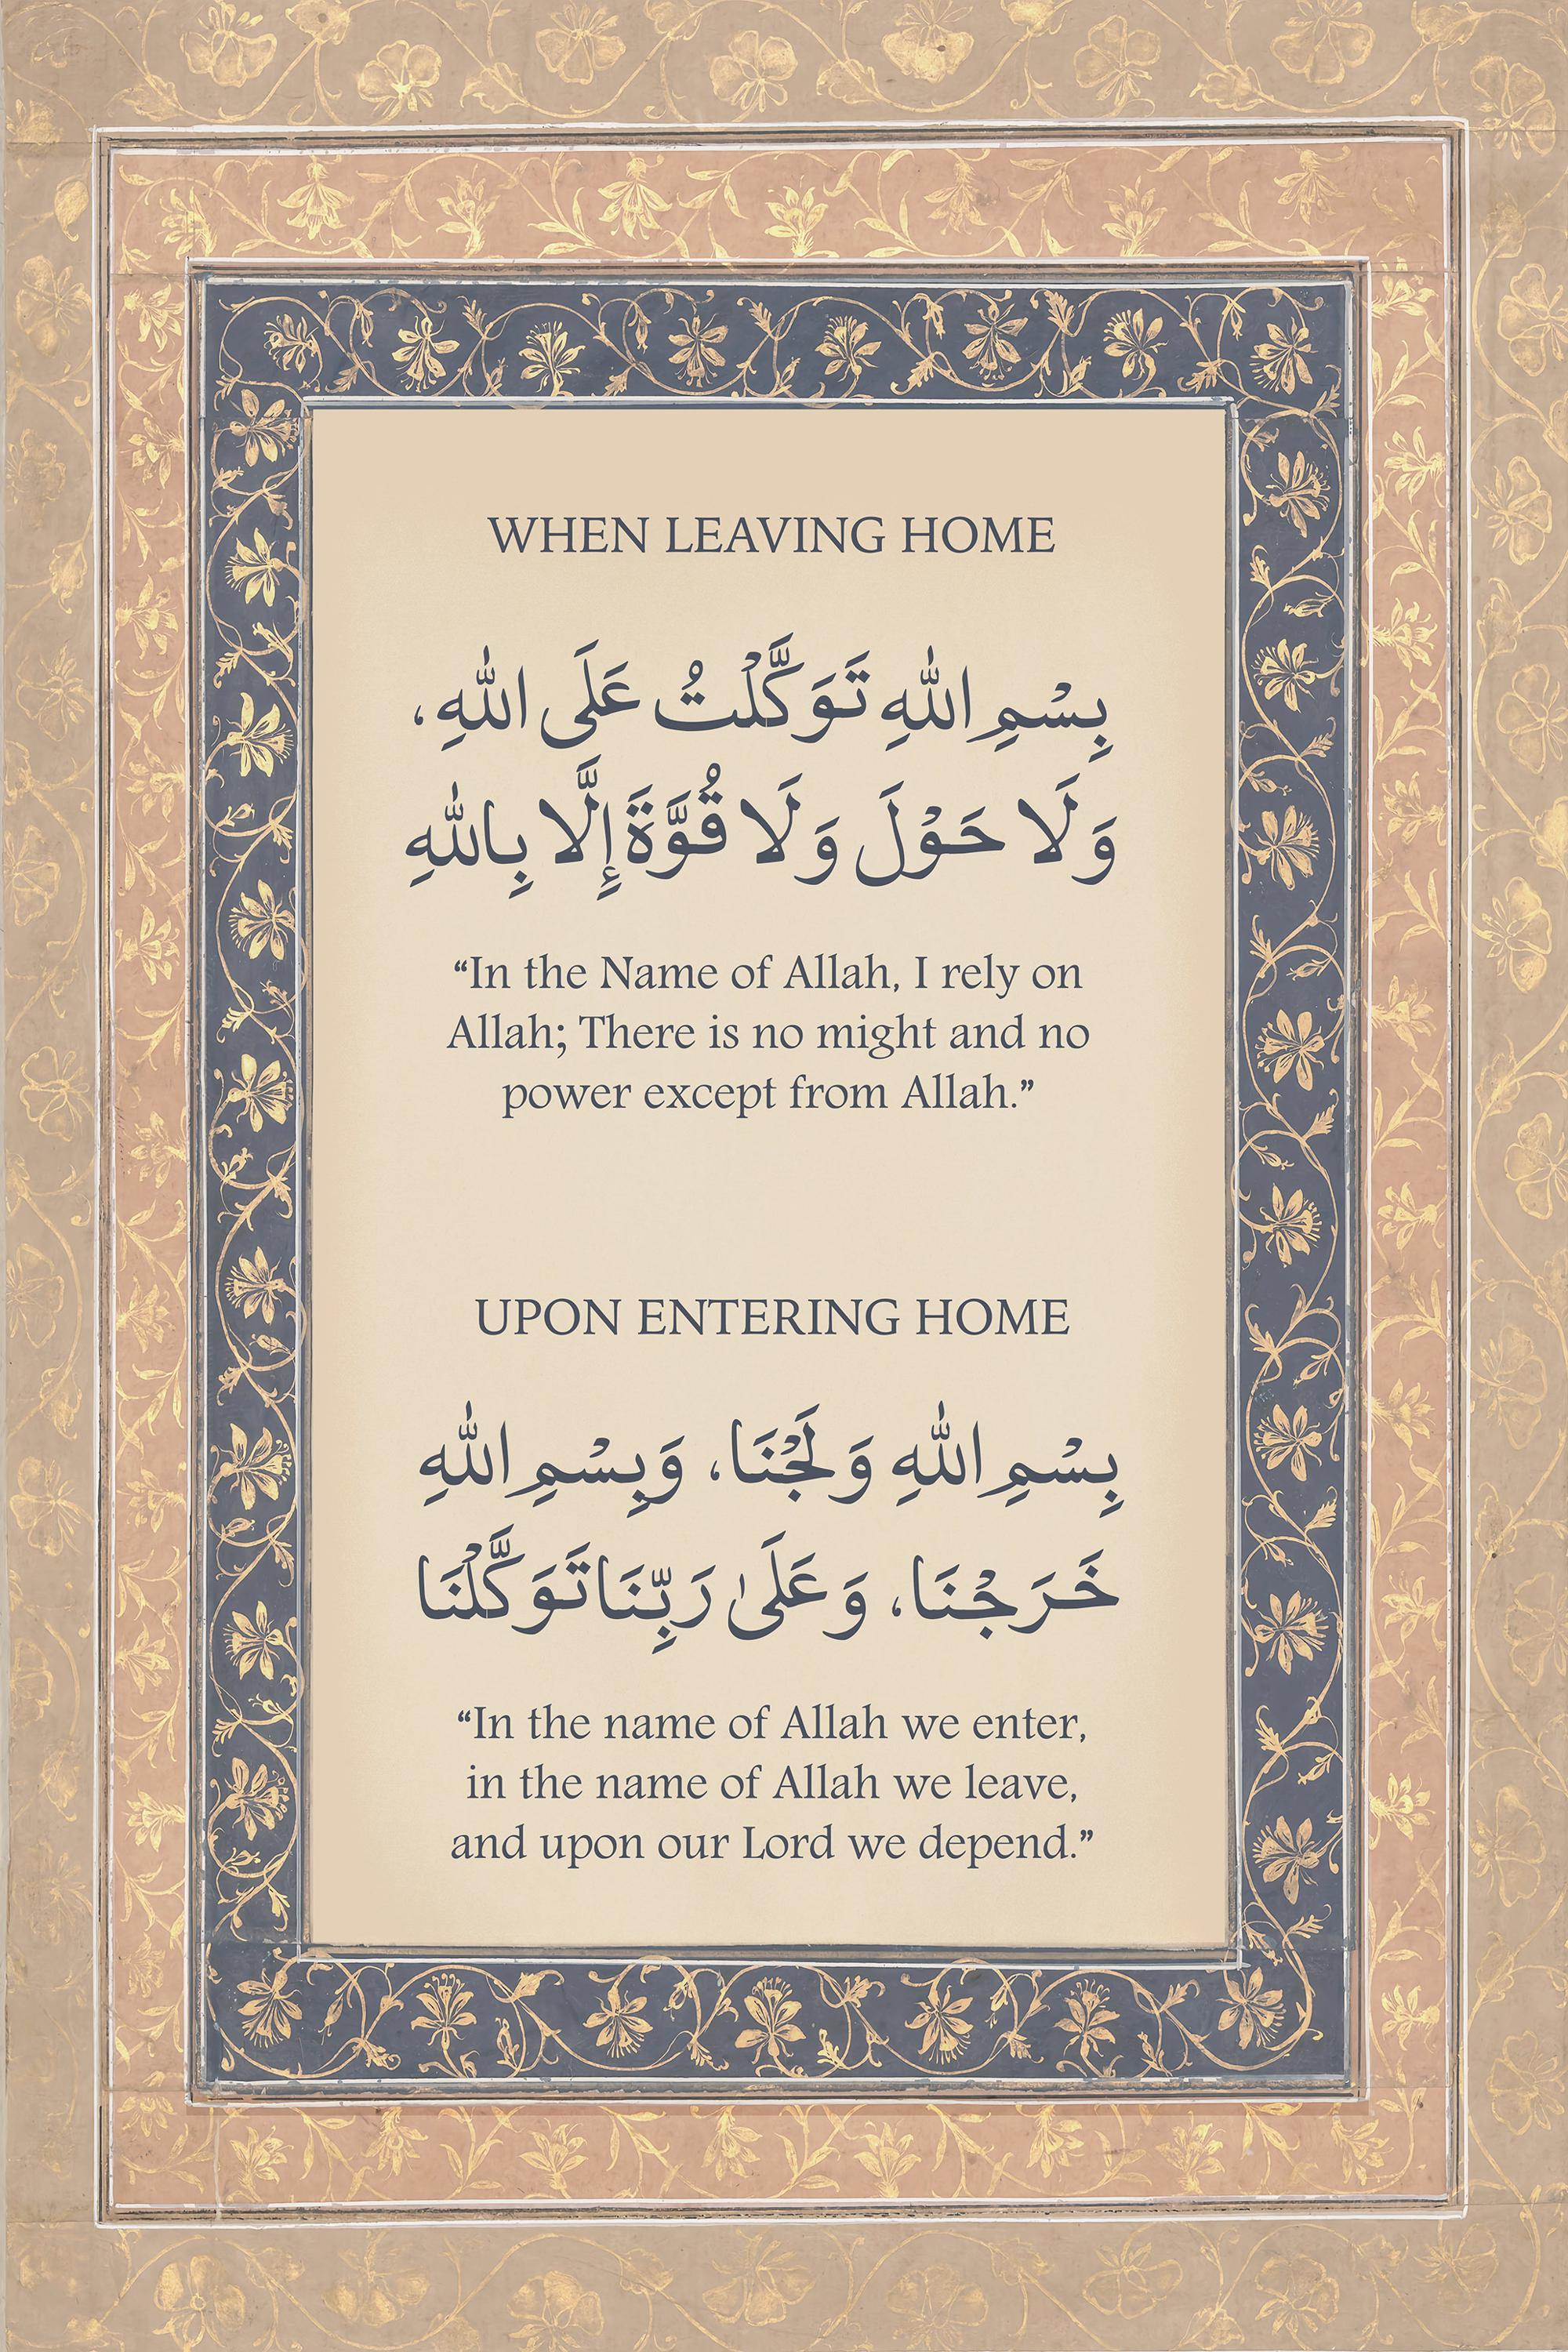 WHEN LEAVING HOME
بِسْمِ اللهِ تَوَكَّلْتُ عَلَى اللهِ،
وَلَا حَوْلَ وَلَا قُوَّةَ إِلَّا بِاللهِ
“In the Name of Allah, I rely on
Allah; There is no might and no
power except from Allah.”
UPON ENTERING HOME
بِسْمِ اللهِ وَلَجْنَا، وَبِسْمِ اللهِ
خَرَجْنَا، وَعَلَىٰ رَبِّنَا تَوَكَّلْنَا
“In the name of Allah we enter,
in the name of Allah we leave,
and upon our Lord we depend.”